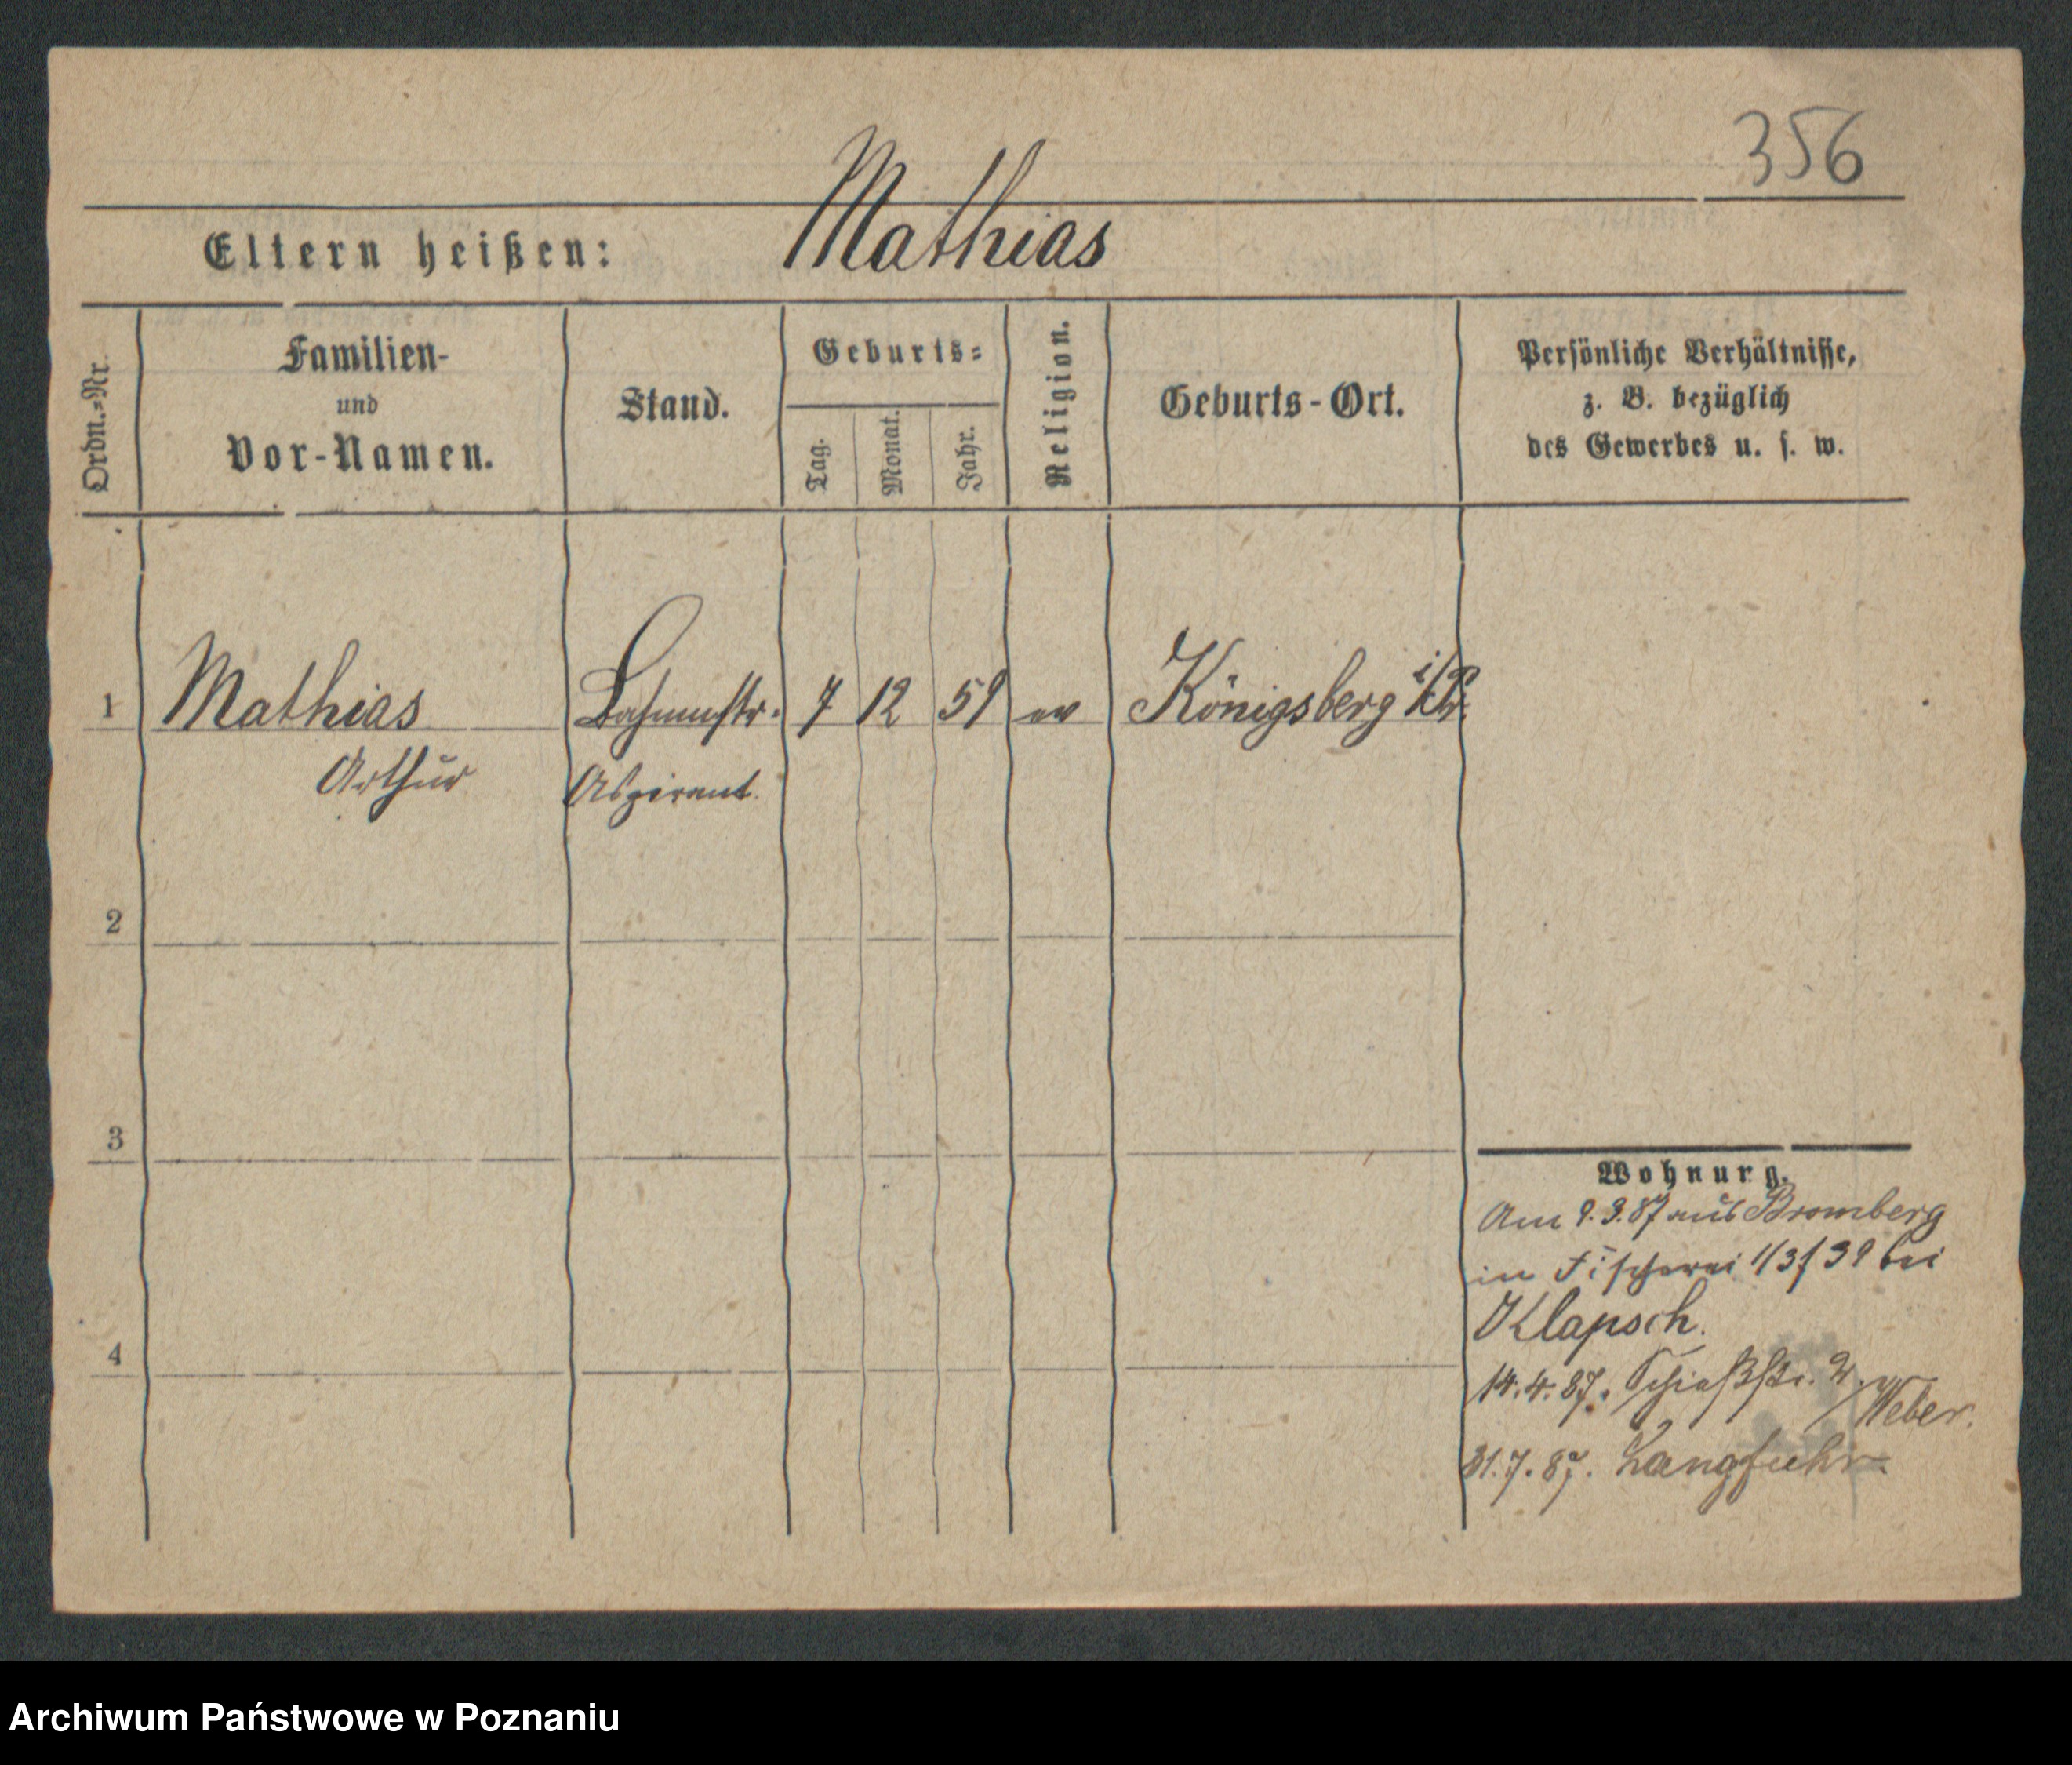 356
Eltern heißen: Mathias
Ordn.=Nr.
Familien-
und
Vor-Namen.
Stand.
Geburts=
Tag.
Monat.
Jahr.
Religion.
Geburts-Ort.
Persönliche Verhältnisse,
z. B. bezüglich
des Gewerbes u. s. w.
1 Mathias 7 12 59 ev Königsberg i/Pr.
Arthur Aspirant.
2
3
4
Wohnurg.
Am 9.3.87 aus Bromberg
in Fischerei 1/3/39 bei
Klapsch.
14.4.87. Schießstr. 2.
Weber.
31.7.87. Langfuhr.
Archiwum Państwowe w Poznaniu